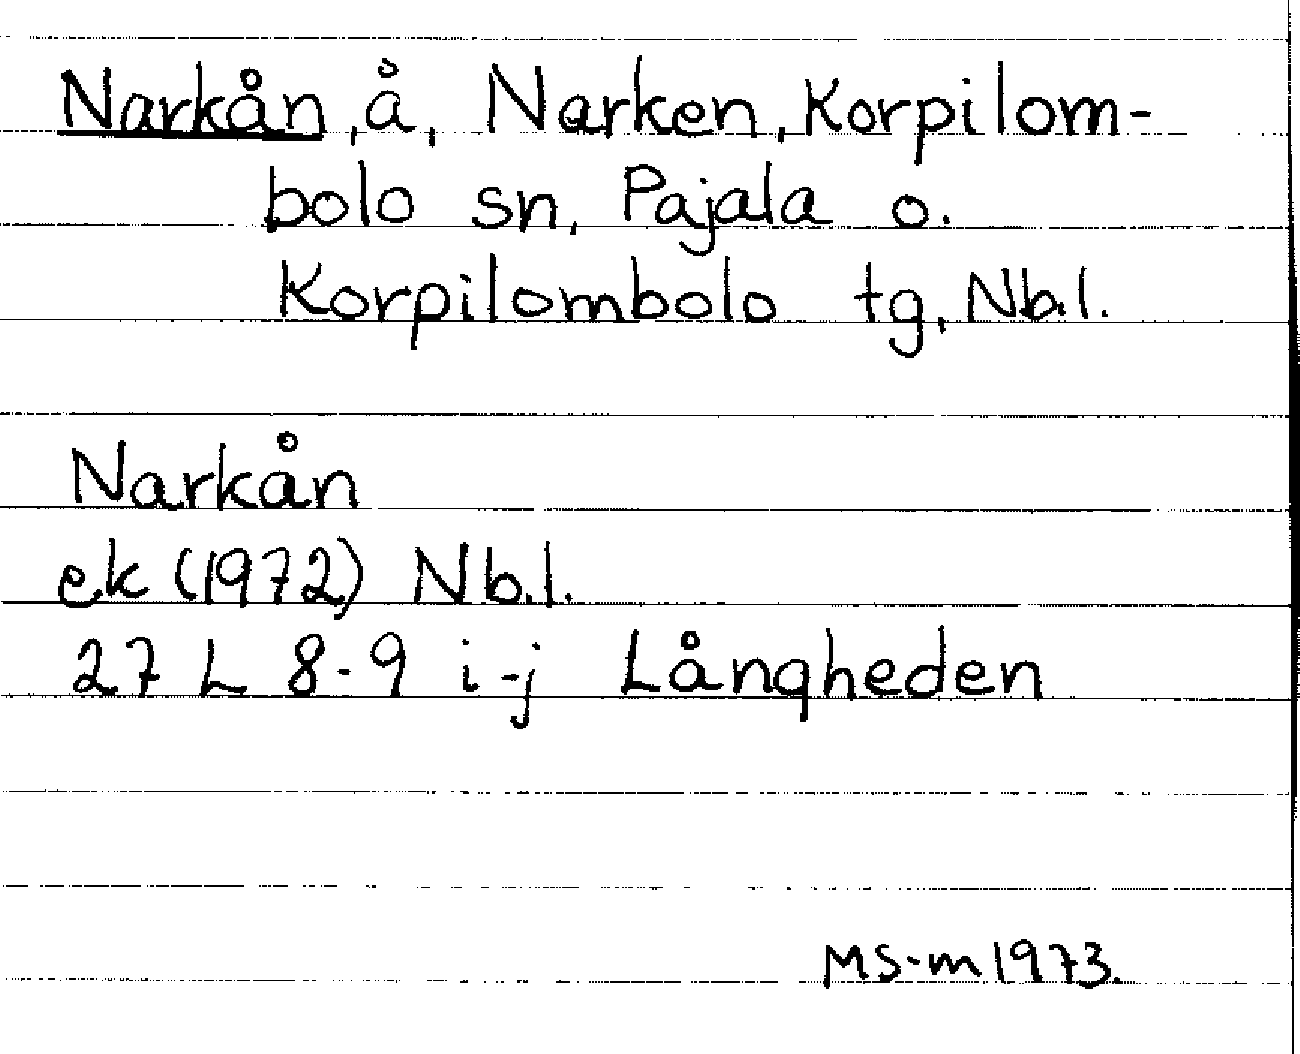 Narkån, å, Narken, Korpilom-
bolo sn, Pajala o.
Korpilombolo tg, Nb.l.
Narkån
ek (1972) Nb.l.
27 L 8-9 i-j Långheden
MS-m 1973.